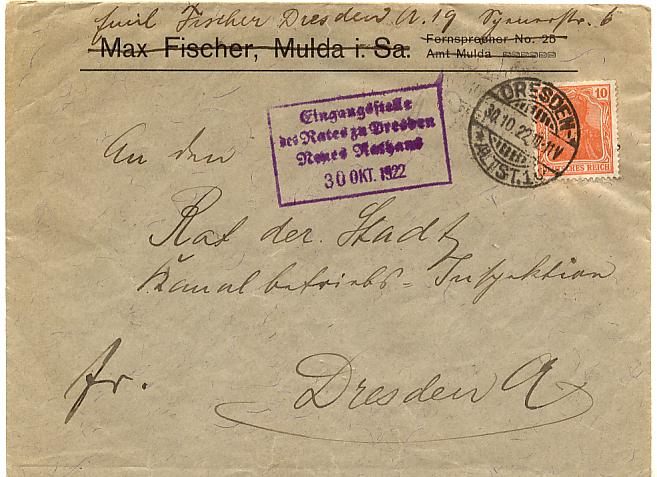 Emil Fischer Dresden A. 19
Max Fischer, Mulda i. Sa.
Fernsprecher No. 25
Amt Mulda
Eingangsstelle
des Rates zu Dresden
Neues Rathaus
30 OKT. 1922
DRESDEN-
30.10.22
*ALTST.
10
DEUTSCHES REICH
An den
Rat der Stadt
Kanalbetriebs=Inspektion
fr.
Dresden A